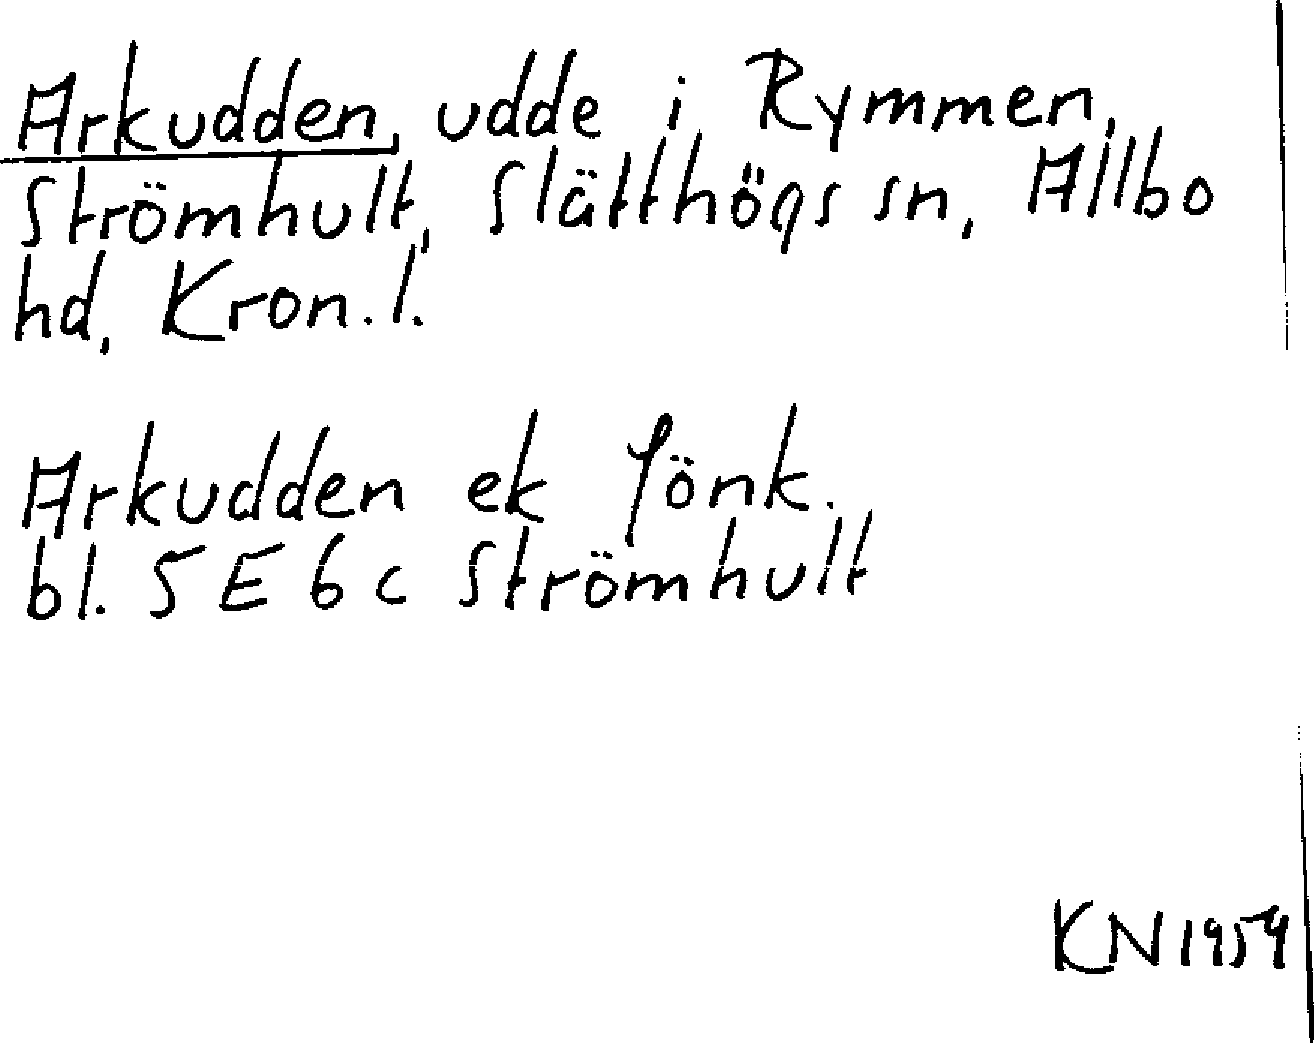 Arkudden, udde i Rymmen,
Strömhult, Slätthögs sn, Allbo
hd, Kron. l.
Arkudden ek Jönk.
bl. 5 E 6 c Strömhult
KN 1959